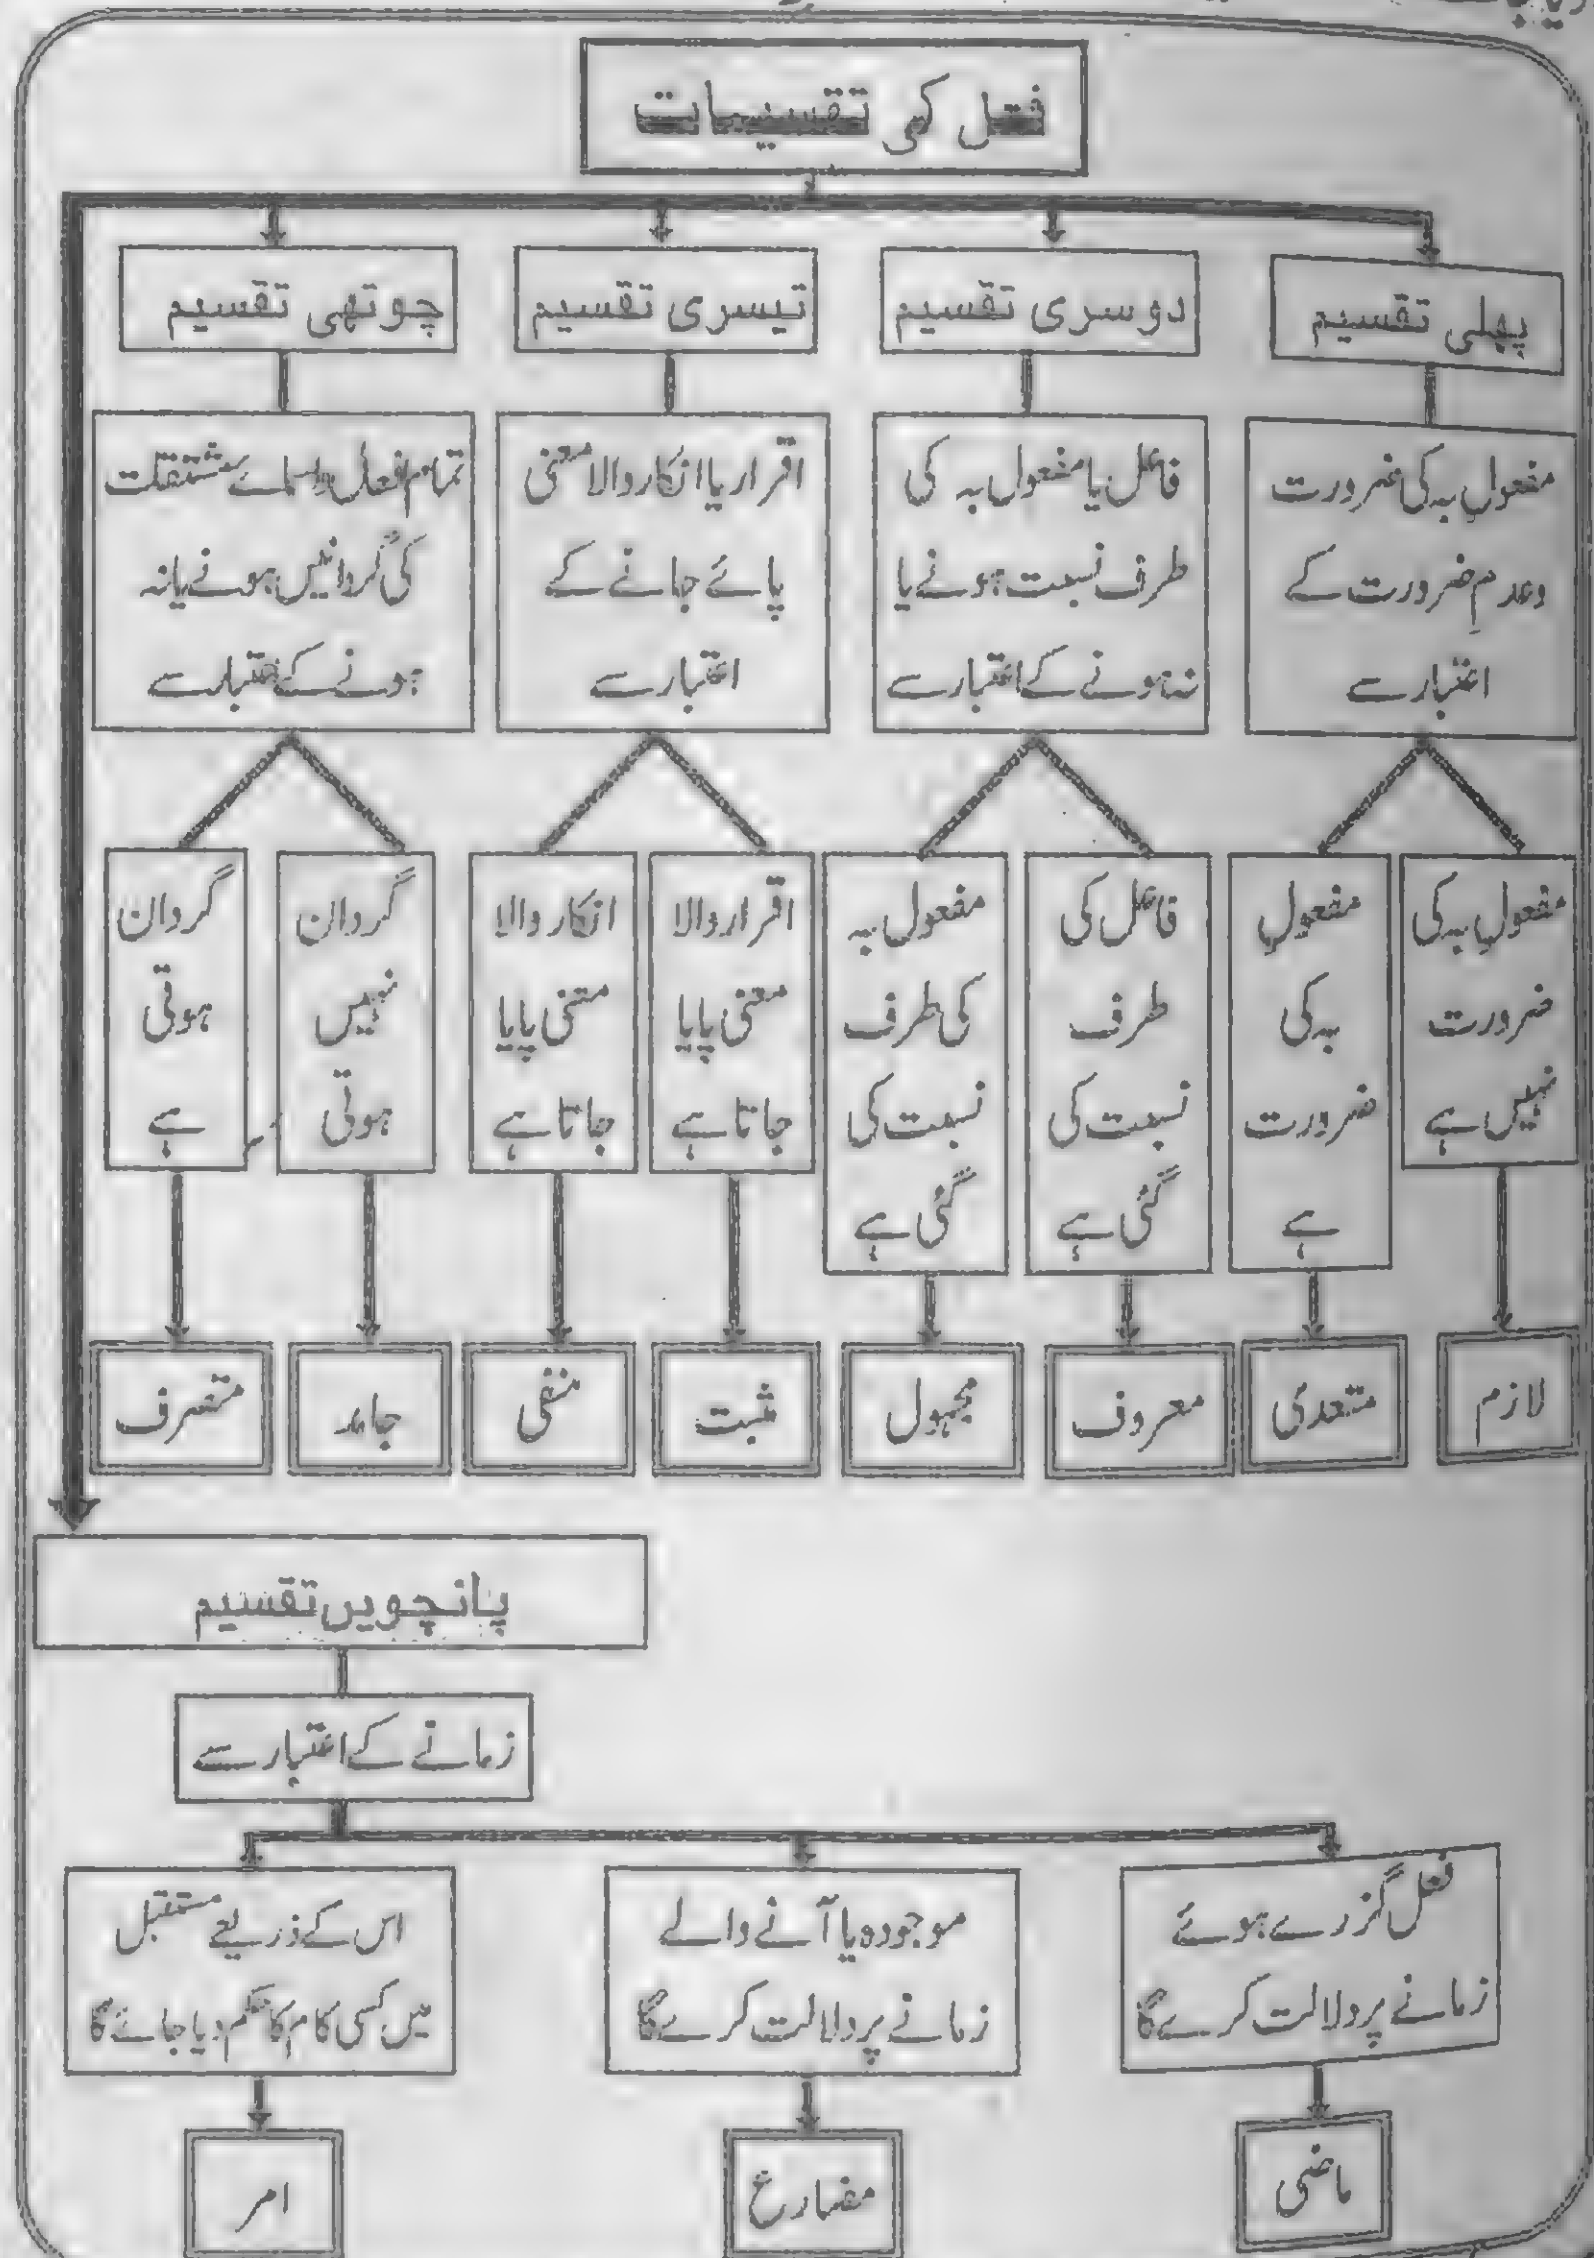 فعل کی تقسیمات
پہلی تقسیم
دوسری تقسیم
تیسری تقسیم
چوتھی تقسیم
مفعولِ بہ کی ضرورت
وعدمِ ضرورت کے
اعتبار سے
فاعل یا مفعول بہ کی
طرف نسبت ہونے یا
نہ ہونے کے اعتبار سے
اقرار یا انکار والا معنی
پائے جانے کے
اعتبار سے
تمام افعال واسمائے مشتقات
کی گردانیں ہونے یا نہ
ہونے کے اعتبار سے
مفعولِ بہ کی
ضرورت
نہیں ہے
مفعولِ
بہ کی
ضرورت
ہے
فاعل کی
طرف
نسبت کی
گئی ہے
مفعول بہ
کی طرف
نسبت کی
گئی ہے
اقرار والا
معنی پایا
جاتا ہے
انکار والا
معنی پایا
جاتا ہے
گردان
نہیں
ہوتی
گردان
ہوتی
ہے
لازم
متعدی
معروف
مجہول
مثبت
منفی
جامد
متصرف
پانچویں تقسیم
زمانے کے اعتبار سے
فعل گزرے ہوئے
زمانے پر دلالت کرے گا
موجودہ یا آنے والے
زمانے پر دلالت کرے گا
اس کے ذریعے مستقبل
میں کسی کام کا حکم دیا جائے گا
ماضی
مضارع
امر